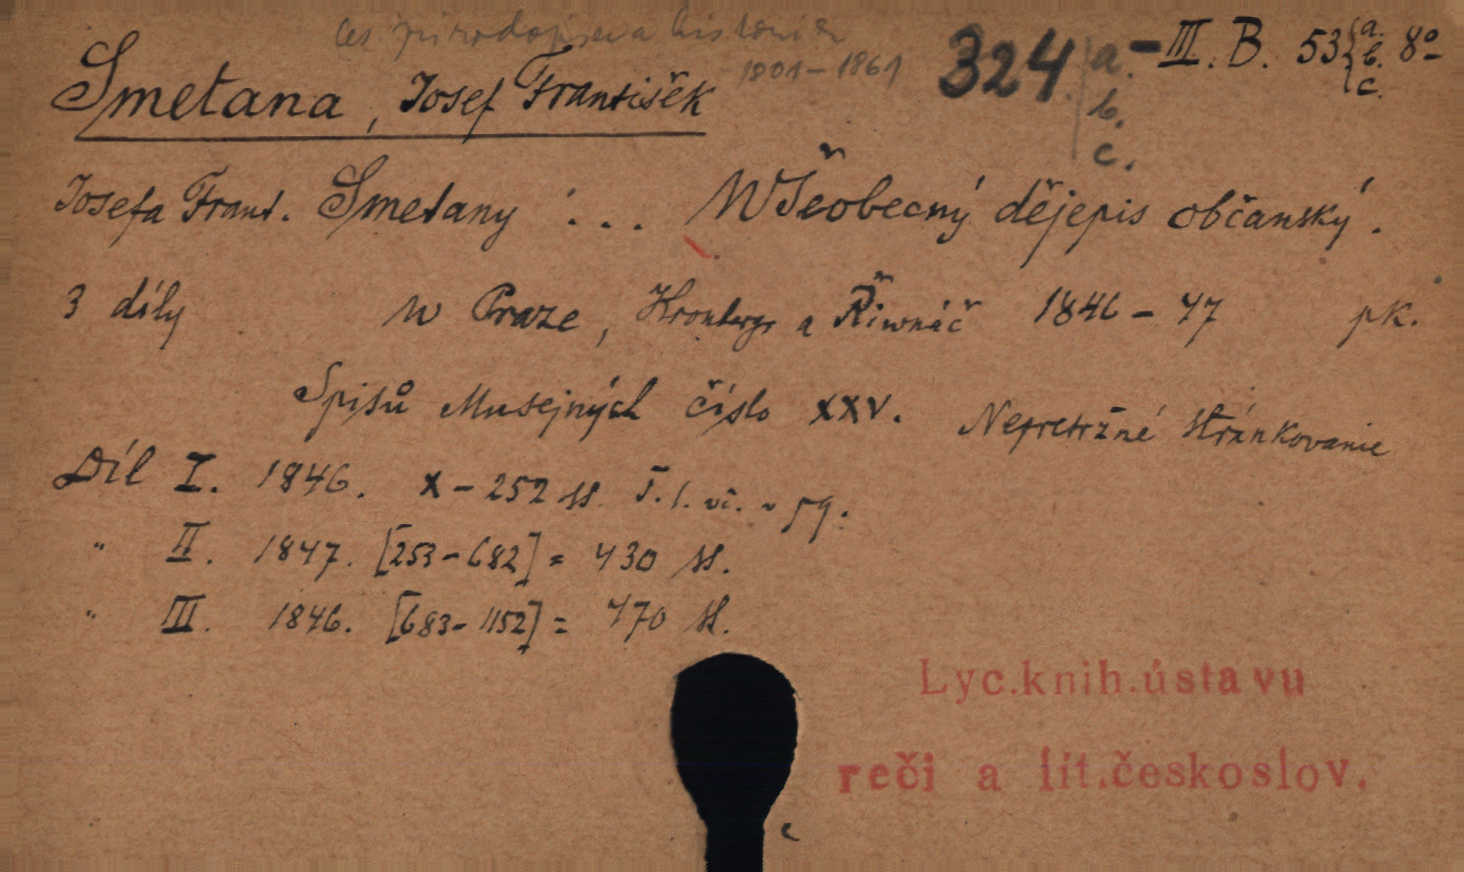 čes přírodopisec a historik
1801–1861
324 a. b. c.
– III. B. 53 {a. b. c. 8°
Smetana, Josef František
Josefa Frant. Smetany ... Wšeobecný dějepis občanský.
3 díly w Praze, Kronberger a Řiwnáč 1846–47 pk.
Spisů Musejných číslo XXV. Nepretržné stránkovanie
Díl I. 1846. X–252 ss.
" II. 1847. [253–682] = 430 ss.
" III. 1846. [683–1152] = 470 ss.
Lyc.knih.ústavu
reči a lit.českoslov.